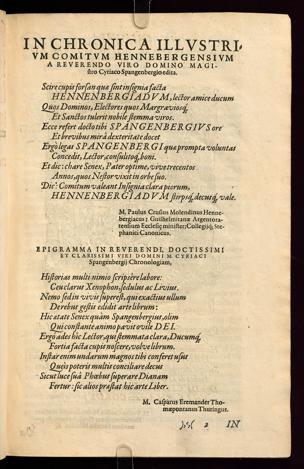 IN CHRONICA ILLVSTRI,
VM COMITVM HENNEBERGENSIVM
A REVERENDO VIRO DOMINO MAGI-
stro Cyriaco Spangenbergio edita.
Scire cupis forsan quæ sint insignia facta
HENNENBERGIADVM, lector amice ducum
Quos Dominos, Electores quos Margræviosq́;
Et Sanctos tulerit nobile stemma viros.
Ecce refert docto tibi SPANGENBERGIVS ore
Et brevibus mira dexteritate docet
Ergò legas SPANGENBERGI quæ prompta voluntas
Concedit, Lector, consulitoq́; boni.
Et dic: chare Senex, Pater optime, vive trecentos
Annos, quos Nestor vixit in orbe suo.
Dic: Comitum valeant Insignia clara piorum,
HENNENBERGIADVM stirpsq́;, decusq́;, vale.
M. Paulus Crusius Molendinus Henne-
bergiacus: Guilhelmitanæ Argentora-
tensium Ecclesię minister; Collegijq́; Ste-
phanici Canonicus.
EPIGRAMMA IN REVERENDI, DOCTISSIMI
ET CLARISSIMI VIRI DOMINI M. CYRIACI
Spangenbergij Chronologiam,
Historias multi nimio scripsère labore:
Ceu clarus Xenophon, sedulus ac Livius.
Nemo sed in vivis superest, qui exactius ullum
De rebus gestis edidit arte librum:
Hic astate Senex quàm Spangenbergius, olim
Qui constante animo pavit ovile DEI.
Ergò ades hic Lector, qui stemmata clara, Ducumq́;
Fortia facta cupis noscere, volve librum.
Instar enim undarum magnos tibi conferet usus
Queis poteris multis conciliare decus
Sicut luce suâ Phœbus superare Dianam
Fertur: sic alios præstat hic arte Liber.
M. Casparus Eremander Tho-
mæpontanus Thuringus.
2 IN